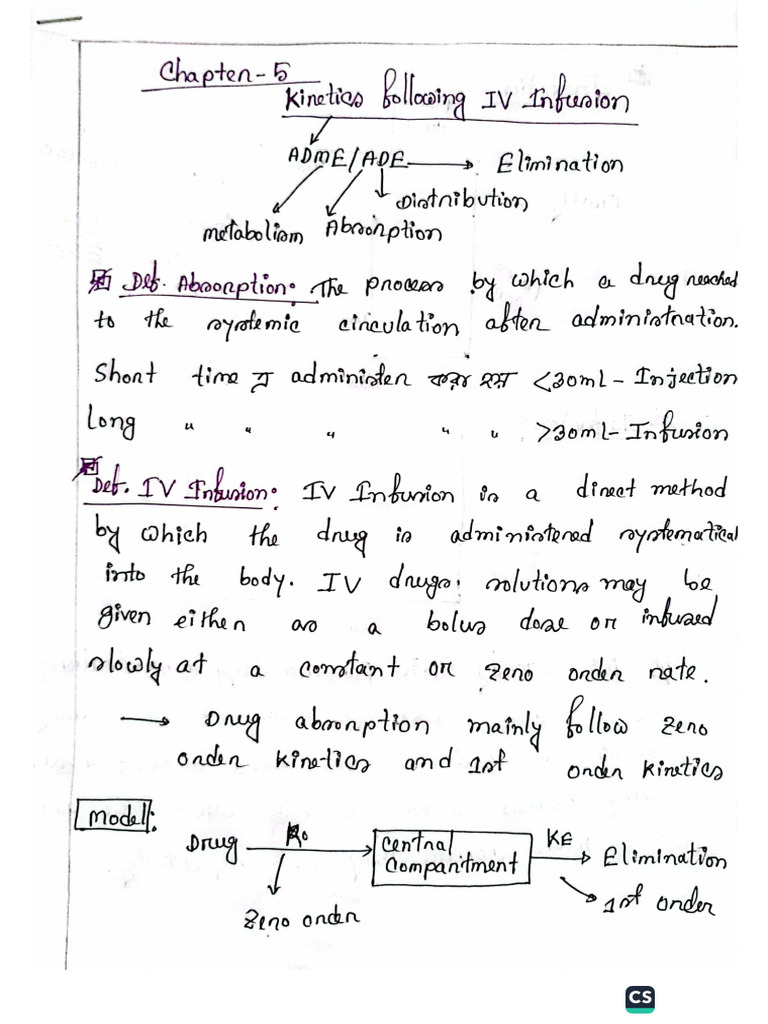 Chapter-5
Kinetics following IV Infusion
ADME/ADE → Elimination
Distribution
metabolism Absorption
Def. Absorption: The process by which a drug reached
to the systemic circulation after administration.
Short time এ administer করা হয় <30ml - Injection
Long " " " " " >30ml - Infusion
Def. IV Infusion: IV Infusion is a direct method
by which the drug is administered systematical
into the body. IV drugs solutions may be
given either as a bolus dose or infused
slowly at a constant or zero order rate.
→ Drug absorption mainly follow zero
order kinetics and 1st order kinetics
Model:
Drug R0 → Central Compartment KE → Elimination
Zero order 1st order
CS